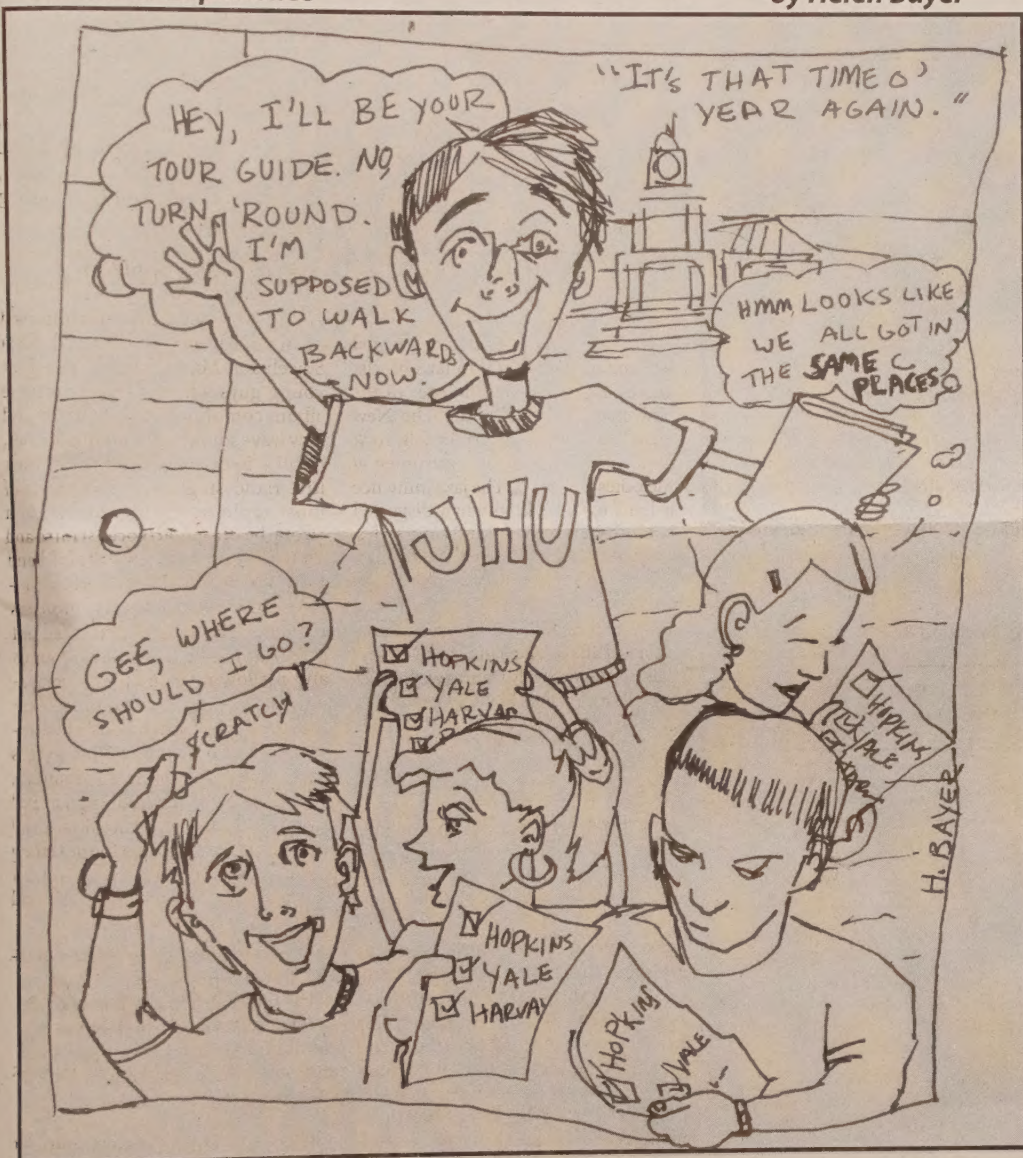 by Helen Bayer
"IT'S THAT TIME O'
YEAR AGAIN."
HEY, I'LL BE YOUR
TOUR GUIDE. NO,
TURN 'ROUND.
I'M
SUPPOSED
TO WALK
BACKWARDS
NOW.
HMM, LOOKS LIKE
WE ALL GOT IN
THE SAME
PLACES
JHU
GEE, WHERE
SHOULD I GO?
SCRATCH
HOPKINS
YALE
HARVAR
HOPKINS
YALE
H. BAYER
HOPKINS
YALE
HARVAR
HOPKINS
YALE